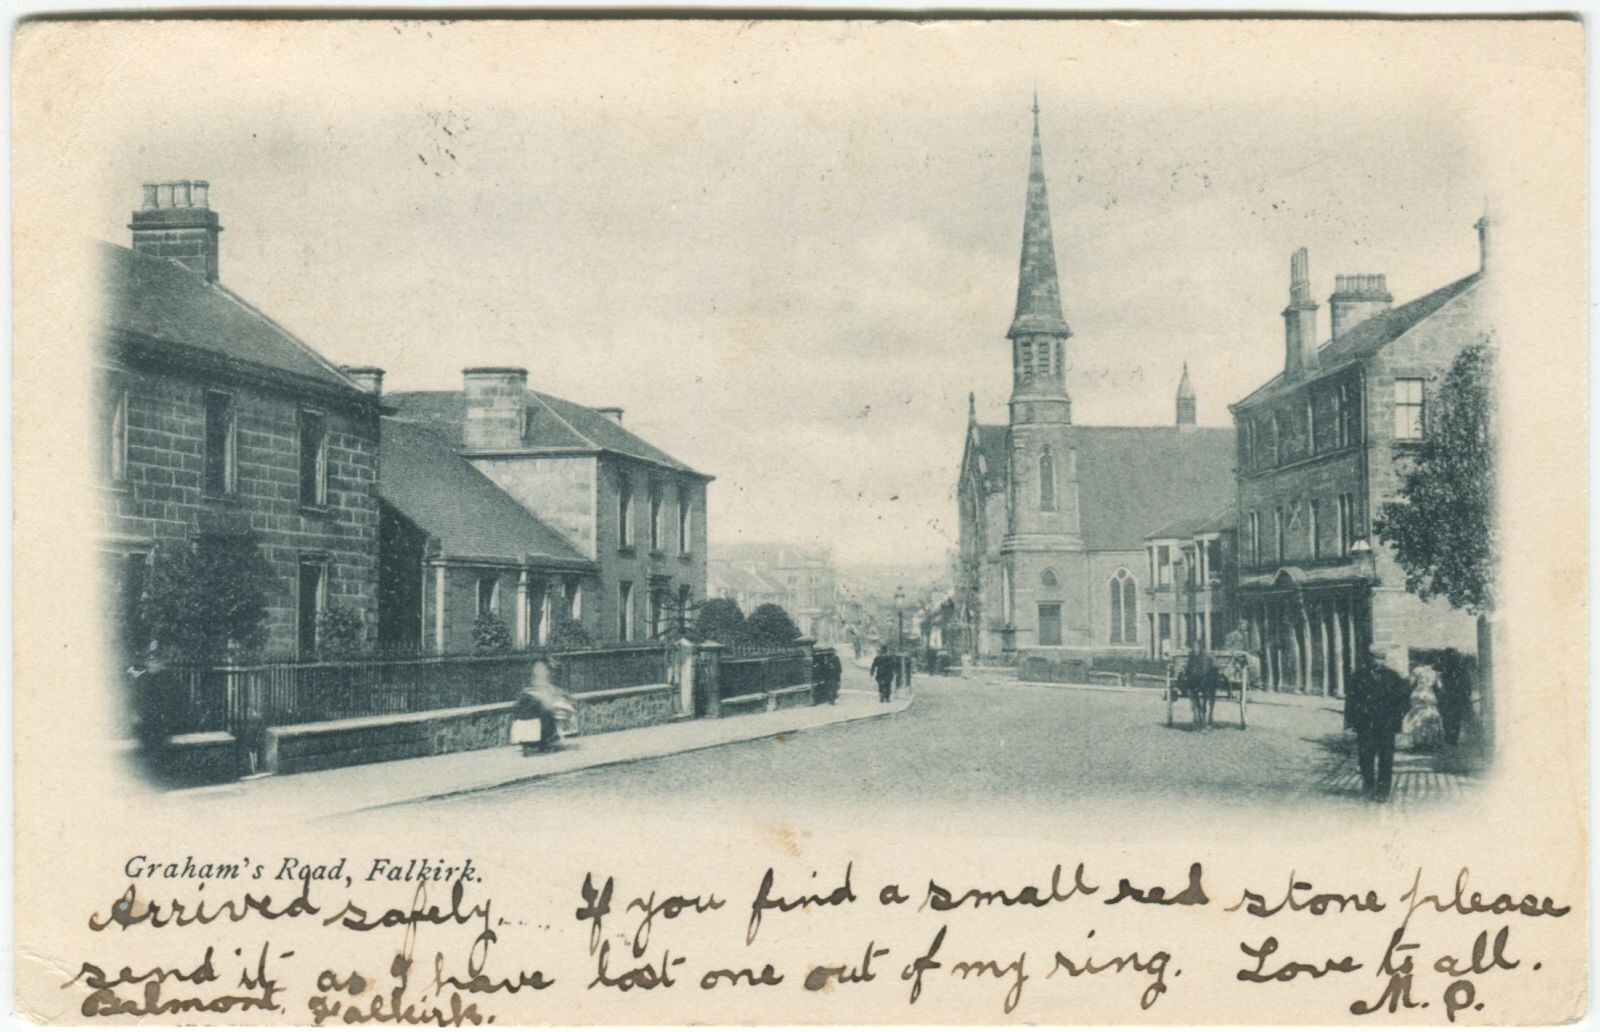 Graham's Road, Falkirk.
Arrived safely. If you find a small red stone please
send it as I have lost one out of my ring. Love to all.
Balmont. Falkirk. M. P.